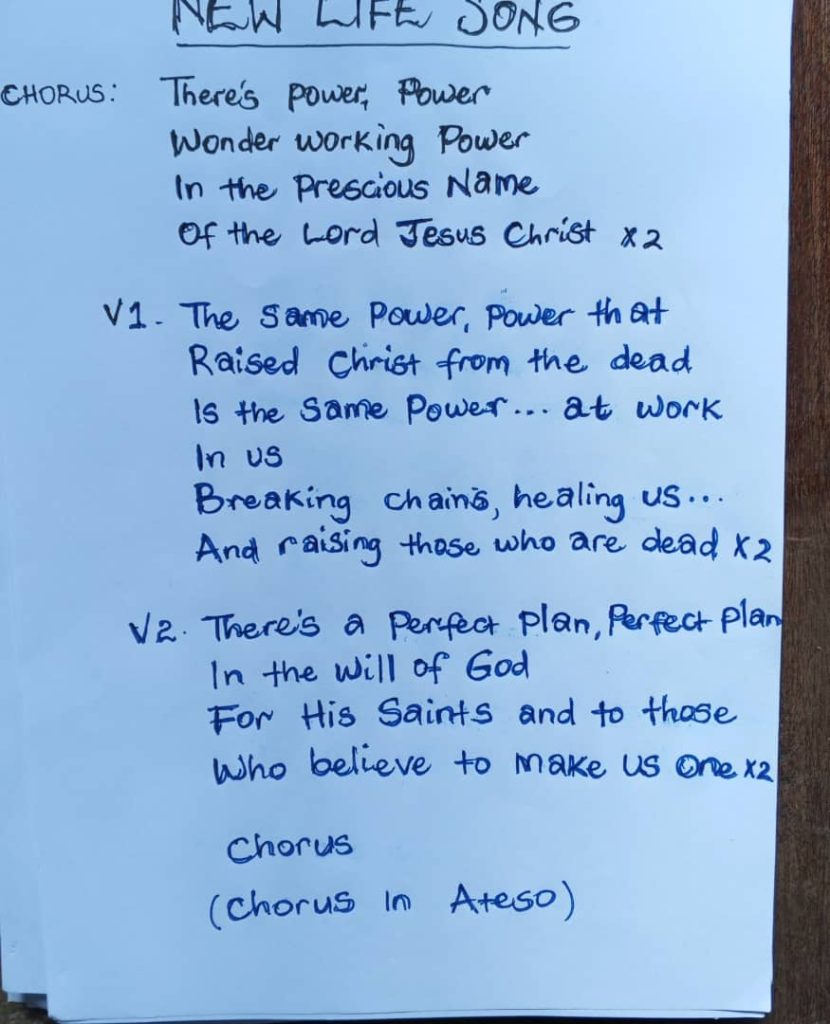 NEW LIFE SONG
CHORUS: There's power, Power
Wonder working Power
In the Prescious Name
Of the Lord Jesus Christ x2
V1. The Same Power, Power that
Raised Christ from the dead
Is the Same Power... at work
In us
Breaking chains, healing us...
And raising those who are dead x2
V2. There's a Perfect Plan, Perfect Plan
In the Will of God
For His Saints and to those
Who believe to make us One x2
Chorus
(Chorus in Ateso)